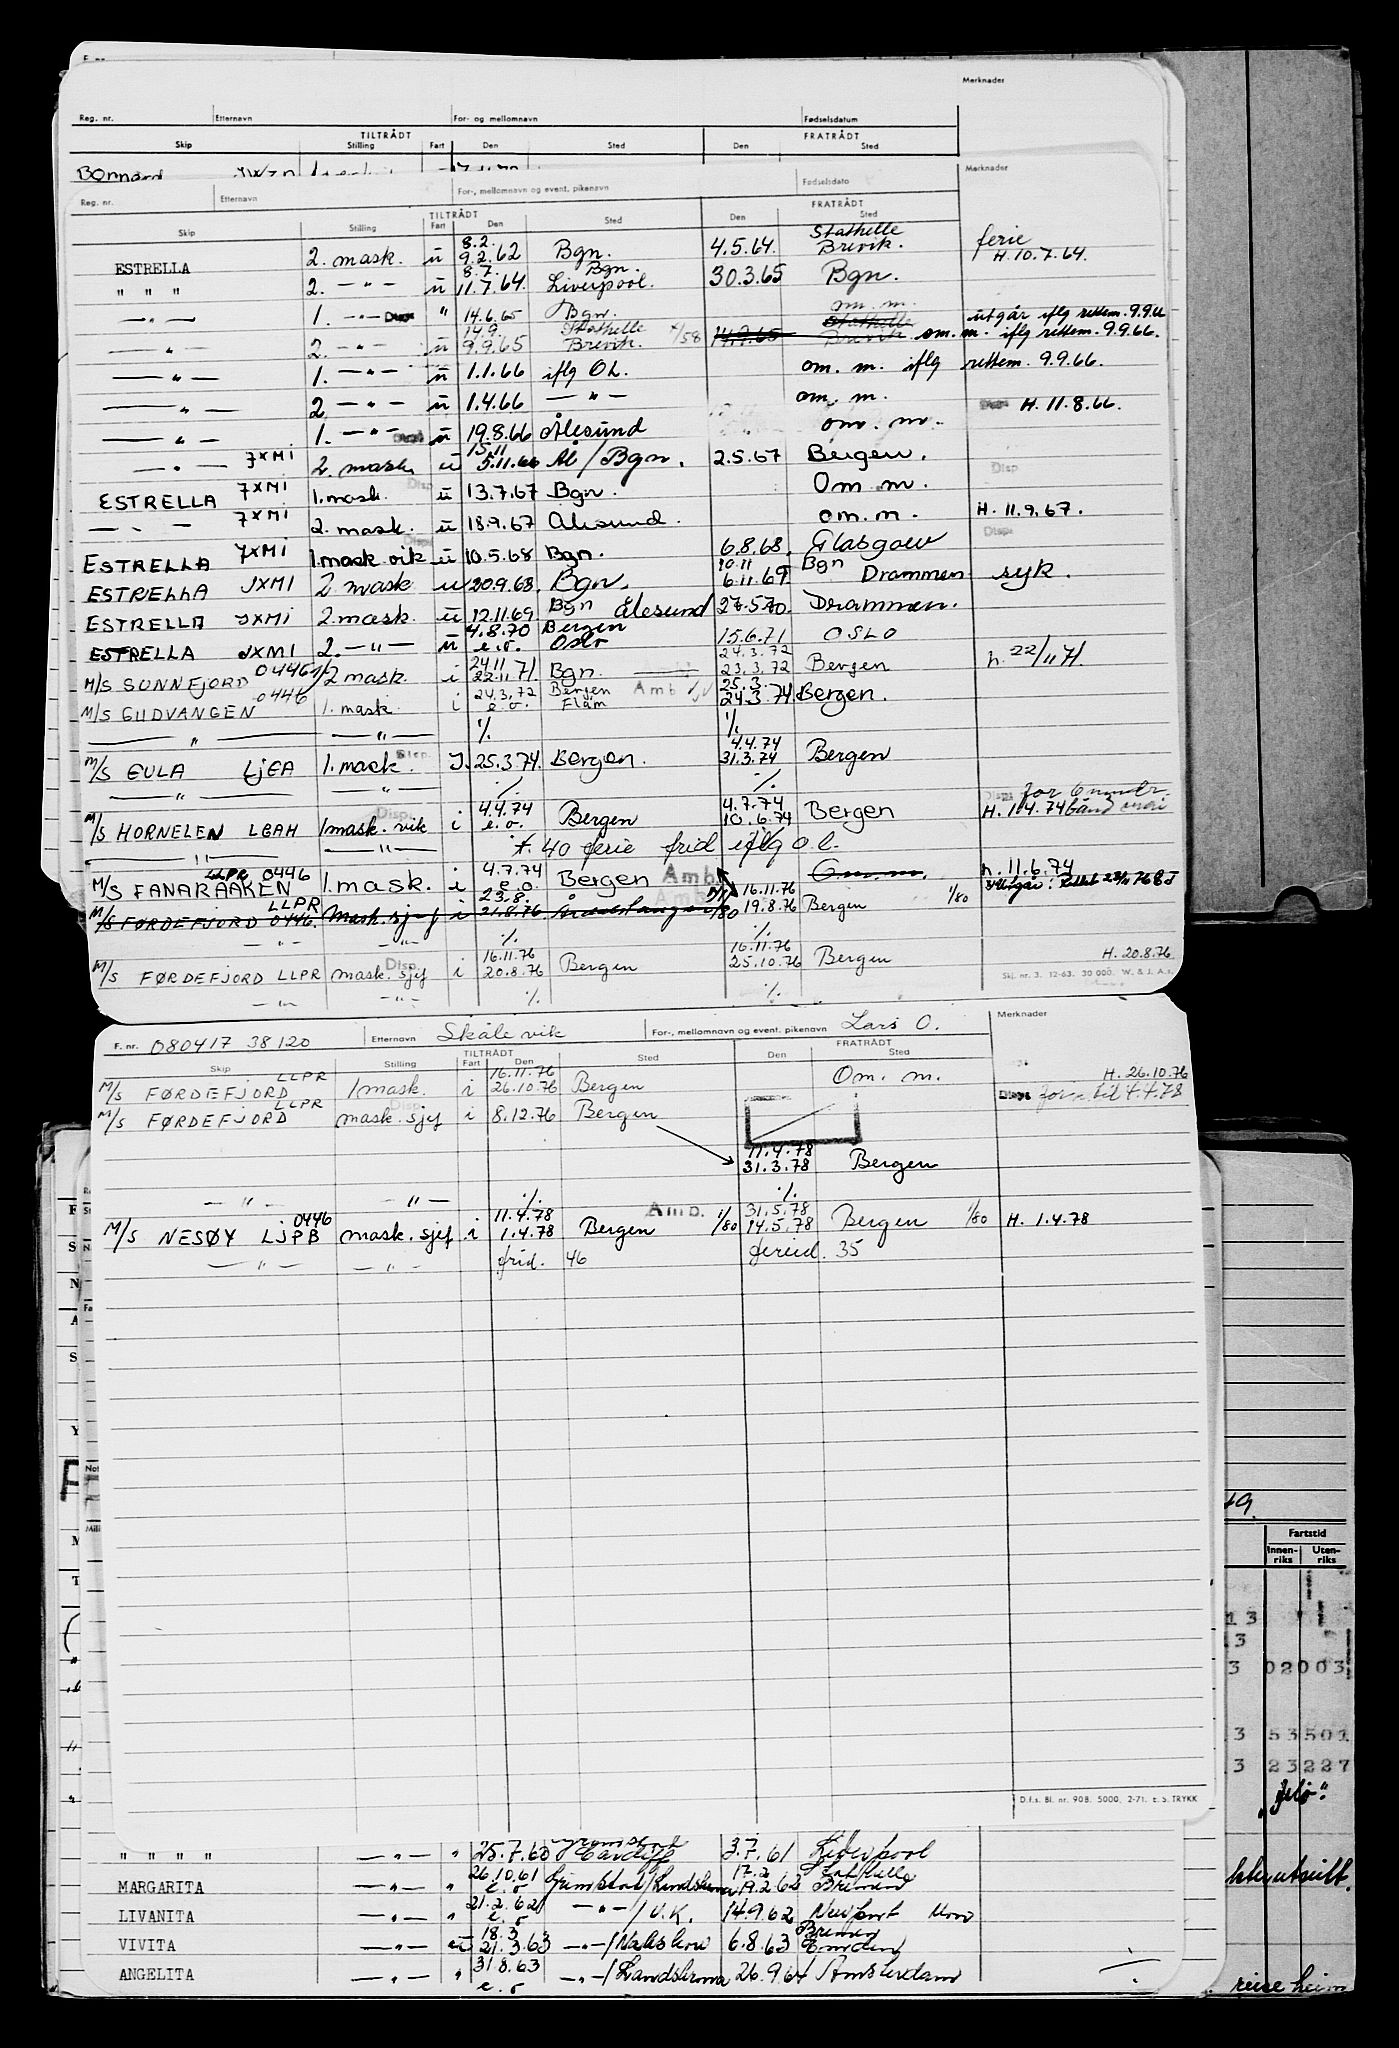 Merknader
Reg. nr. Etternavn For- og mellomnavn Fødselsdatum
TILTRÅDT FRATRÅDT
Skip Stilling Fart Den Sted Den Sted
Bonnard
Reg. nr. Etternavn For-, mellomnavn og event. pikenavn Fødselsdato Merknader
TILTRÅDT FRATRÅDT
Skip Stilling Fart Den Sted Den Sted
8.2. Stathelle ferie
ESTRELLA 2. mask. ü 9.2.62 Bgn. 4.5.64. Brevik. H.10.7.64.
8.7. Bgn.
" " " 2. -"- ü 11.7.64. Liverpool. 30.3.65 Bgn.
-"- 1. -"- Disp " 14.6.65 Bgn. om. m. utgår iflg rettem. 9.9.66
14.9. Stathelle Stathelle
" 2. -"- ü 9.9.65 Brevik. 14.9.65 Brevik om. m. iflg rettem. 9.9.66.
-"- 1. -"- ü 1.1.66 iflg OL. om. m. iflg rettem. 9.9.66.
-"- 2 -"- ü 1.4.66 -"- om. m. H. 11.8.66.
-"- 1. -"- Disp ü 19.8.66 Ålesund om. m.
15.11
-"- 7XMI 2. mask. ü 5.11.66 Ål/Bgn. 2.5.67 Bergen. Disp
ESTRELLA 7XMI 1. mask. Disp ü 13.7.67 Bgn. Om m.
-"- 7XMI 2. mask. ü 18.9.67 Ålesund. om.m. H. 11.9.67.
ESTRELLA 7XMI 1.mask vik ü 10.5.68 Bgn. 6.8.68. Glasgow
10.11 Bgn
ESTRELLA JXMI 2. mask u 20.9.68. Bgn. 6.11.69 Drammen syk.
ESTRELLA JXMI 2.mask. ü 12.11.69. Bgn Ålesund 27.5.70. Drammen.
4.8.70 Bergen
ESTRELLA JXMI 2. -"- ü e.o. Oslo 15.6.71 OSLO
24.11 24.3.72
M/S SUNNFJORD 0446 2 mask. i 22.11.71. Bgn. 23.3.72 Bergen h. 22/11 71.
24.3.72 Bergen Amb 25.3.
M/S GUDVANGEN 0446 1. mask. i e.o. Flåm 24.3.74. Bergen.
-"- -"- ./. ./.
4.4.74
M/S EULA LJEA 1. mask. Disp. I. 25.3.74. Bergen. 31.3.74 Bergen
-"- -"- ./. ./. for 6 mndr.
4.4.74 4.7.74
M/S HORNELEN LGAH 1mask. vik i e.o. Bergen 10.6.74 Bergen H. 1.4.74
-"- -"- f. 40 ferie frid iflg o.l.
LLPR 0446 4.7.74 h. 11.6.74
M/S FANARAAKEN 1.mask. i e.o. Bergen Amb. Om m.
LLPR 23.8. 16.11.76
M/S FØRDEFJORD 0446. Mask. sjef i 21.8.76 1/80 19.8.76 Bergen 1/80
-"- -"- ./. ./.
16.11.76 16.11.76
M/S FØRDEFJORD LLPR mask. sjef i 20.8.76 Bergen 25.10.76 Bergen H. 20.8.76
-"- -"- ./. ./.
Skj. nr. 3. 12-63. 30 000. W. & J. A.s.
F. nr. 080417 38120 Etternavn Skålevik For-, mellomnavn og event. pikenavn Lars O. Merknader
TILTRÅDT FRATRÅDT
Skip Stilling Fart Den Sted Den Sted
LLPR 16.11.76 H. 26.10.76
M/S FØRDEFJORD 1mask. i 26.10.76 Bergen Om. m. Disp. forn. til 4.4.78
M/S FØRDEFJORD LLPR mask. sjef i 8.12.76 Bergen
11.4.78
31.3.78 Bergen
-"- -"- ./. ./.
0446 11.4.78 Amb. 31.5.78
M/S NESØY LJPB mask. sjef i 1.4.78 Bergen 1/80 14.5.78 Bergen 1/80 H. 1.4.78
-"- -"- frid. 46 feried. 35
D.f.s. Bl. nr. 90B. 5000. 2-71. E. S. TRYKK
" " " " -"- " 25.7.60 Cardiff 3.7.61 Liverpool
26.10.61 17.2
MARGARITA -"- " e.o 19.2.62
21.2.62
LIVANITA -"- " e.o -"-/U.K. 14.9.62 Newport Mon
18.3 Bremen
VIVITA -"- ü 21.3.63 -"-/Nakskov 6.8.63 Emden
31.8.63
ANGELITA -"- " e.o -"-/Landskrona 26.9.64 Amsterdam
Fartstid
Innen-riks Uten-riks
13
3
3 02003
3 53501
3 23227
reise heim